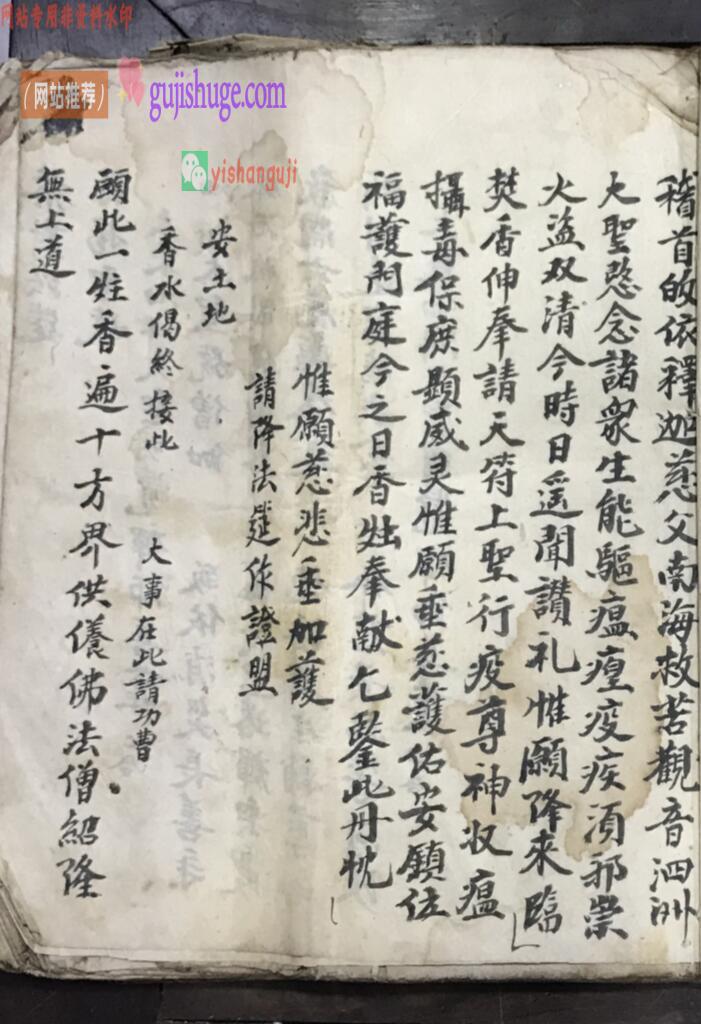 网站专用非资料水印
(网站推荐)
gujishuge.com
yishanguji
稽首皈依釋迦慈父南海救苦觀音泗洲
大聖愍念諸衆生能驅瘟㾮疫疾須邪祟
火盗双清今時日遥聞讃礼惟願降來臨
焚香伸奉請天符上聖行疫尊神収瘟
攝毒保庻顯威灵惟願垂慈護佑安鎮伍
福護門庭今之日香炷奉献乞鑒此丹忱
惟願慈悲垂加護
請降法筵作證盟
安土地
香水偈終接此
大事在此請功曹
願此一炷香遍十方界供儀佛法僧紹隆
無上道